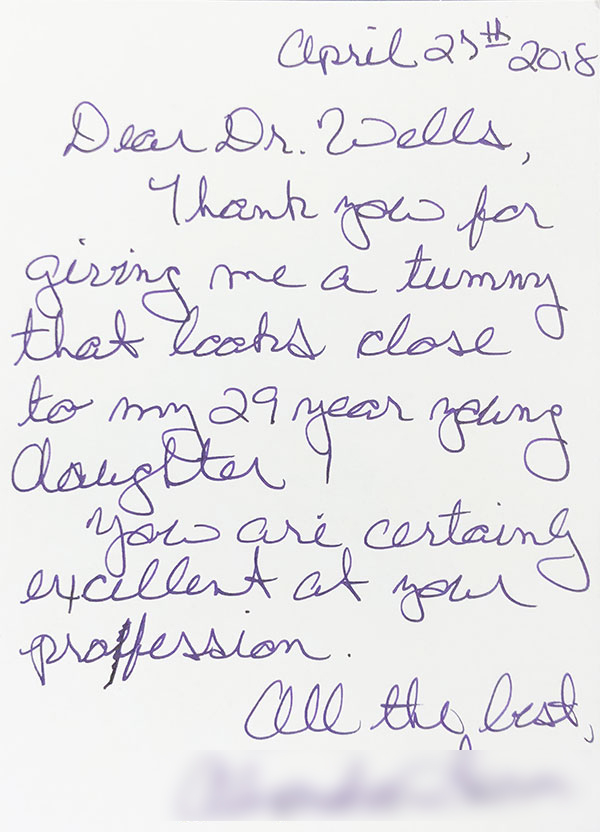 April 25th 2018
Dear Dr. Wells,
Thank you for
giving me a tummy
that looks close
to my 29 year young
daughter!
You are certainly
excellent at your
proffession.
All the best,